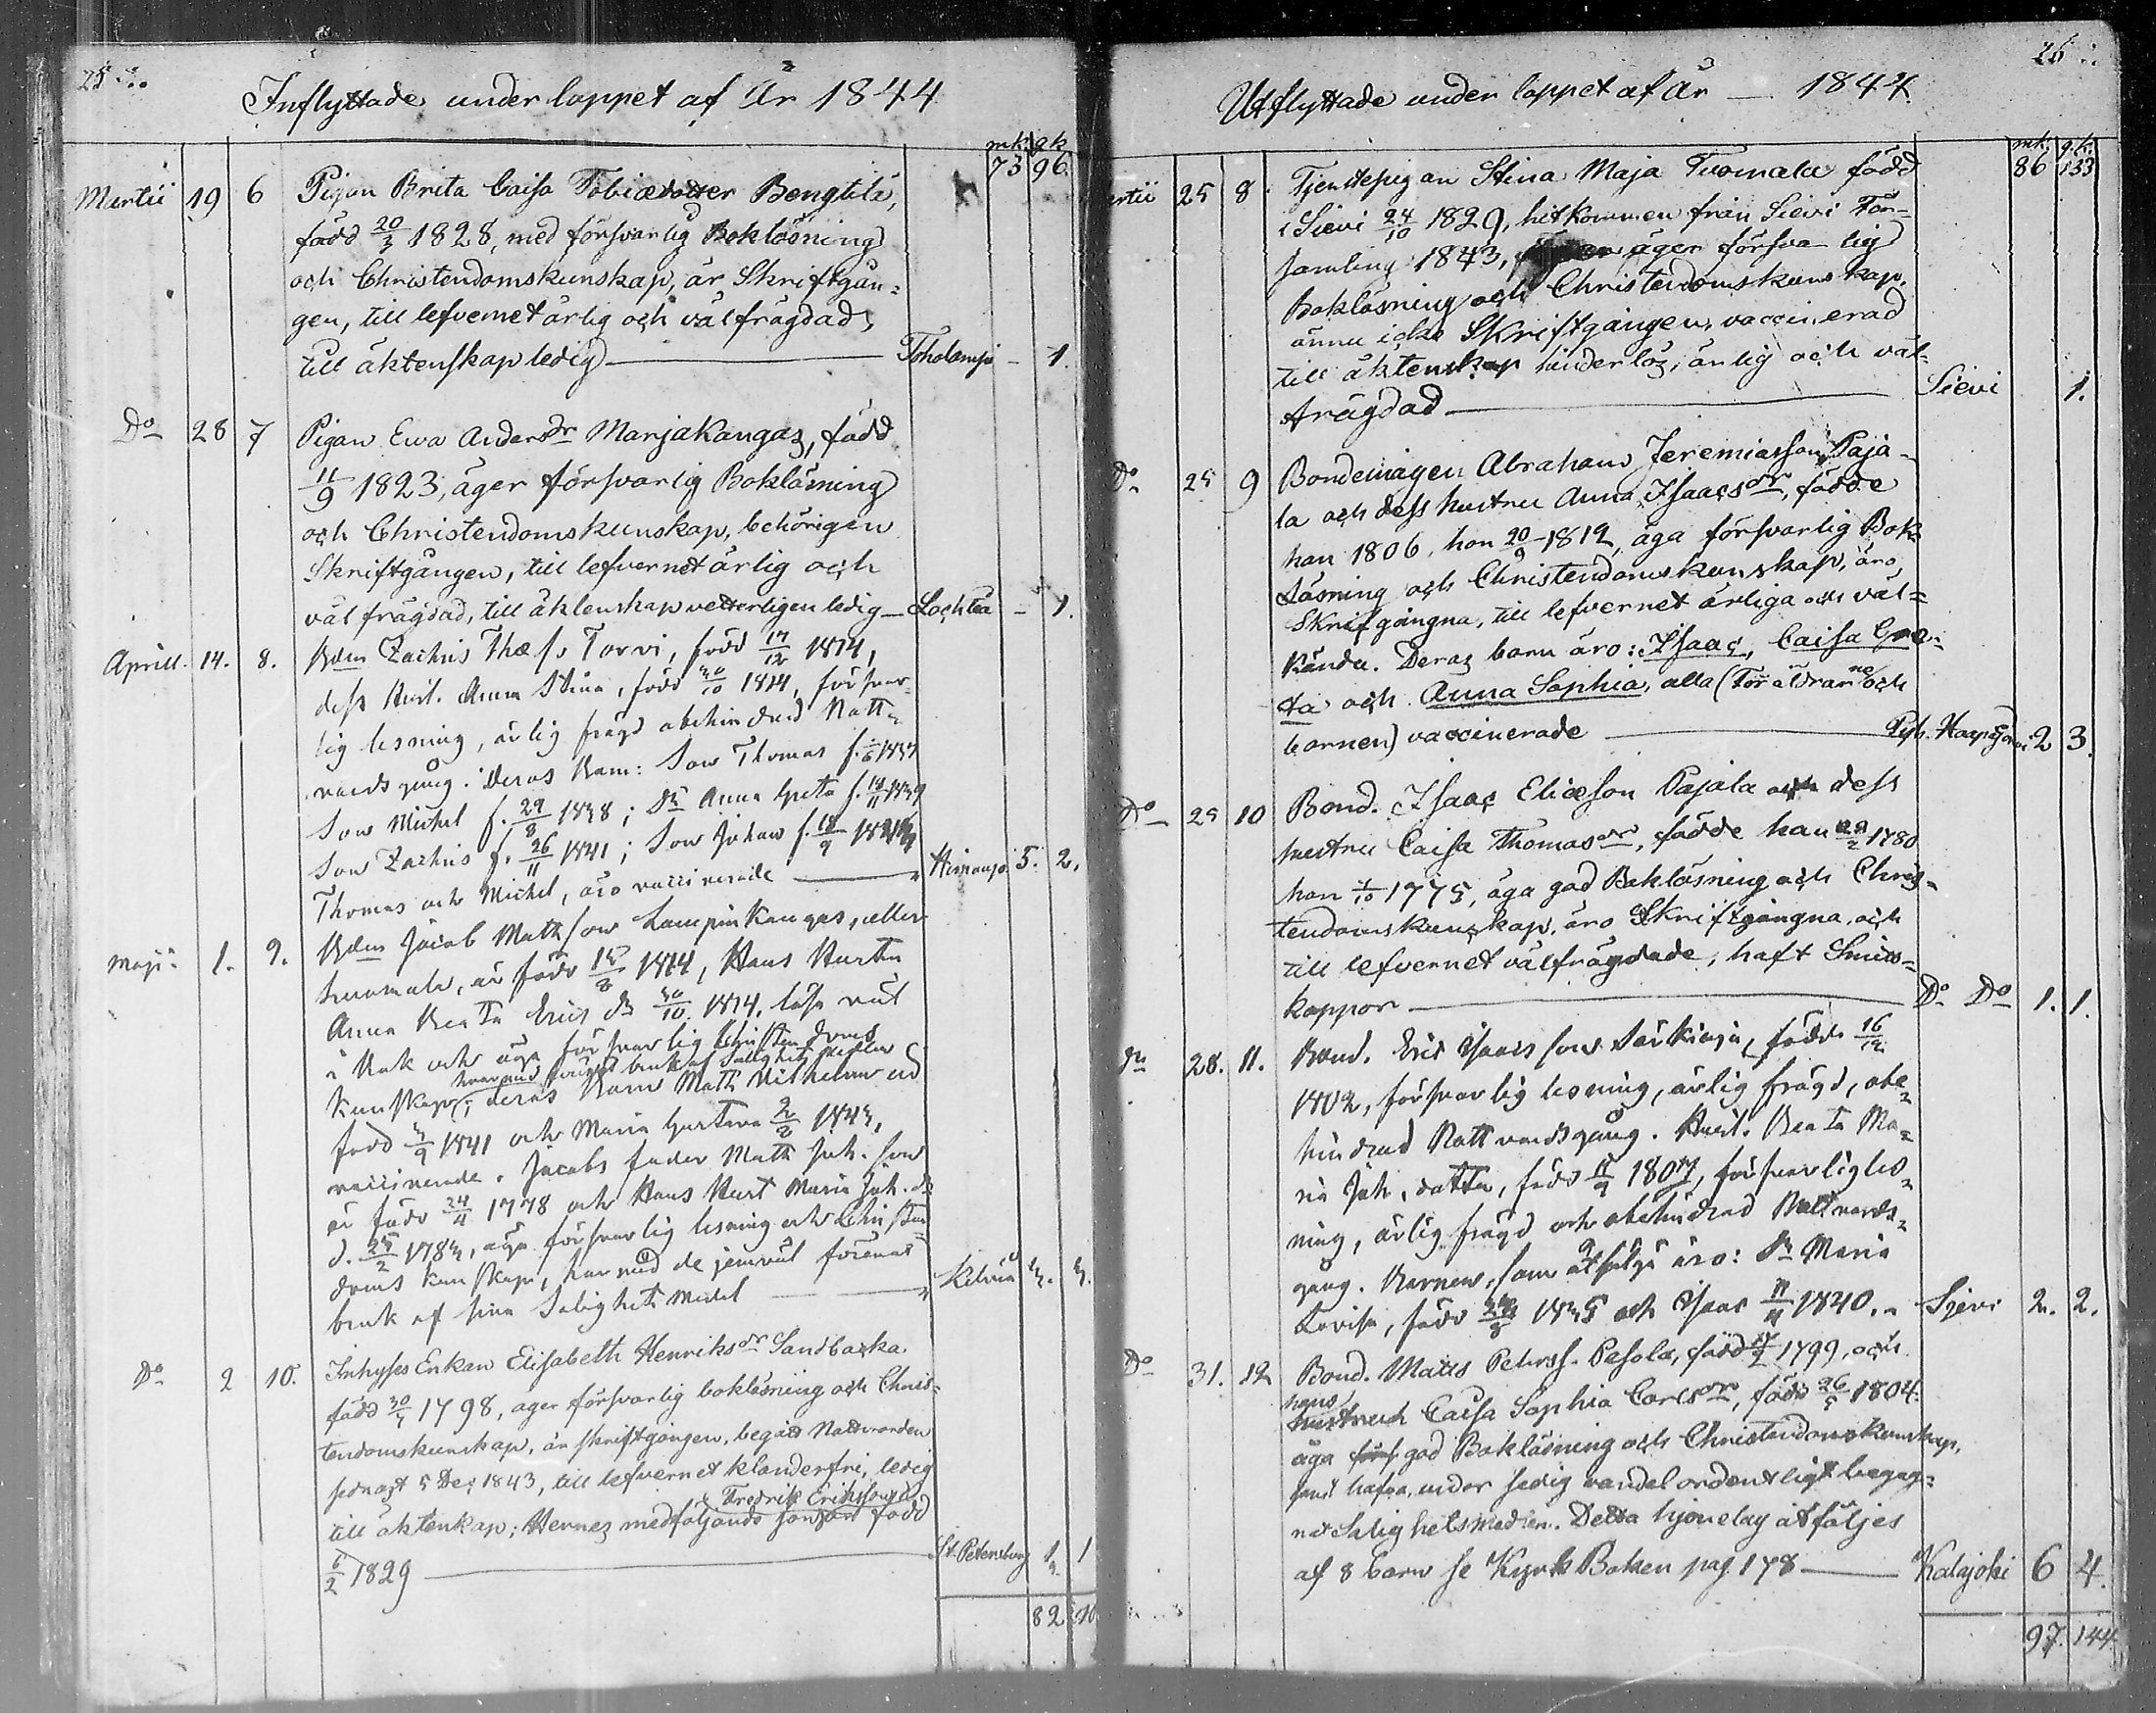 25
Inflyttade under loppet af År 1844
mk. qk.
73 96.
Martii 19 6 Pigan Brita Caisa Tobiædotter Bengtila,
född 20/3 1828, med försvarlig Bokläsning
och Christendomskunskap, är Skriftgån=
gen, till lefvernet ärlig och välfrägdad,
till äktenskap ledig — Toholampi – 1.
Do 28 7 Pigan Ewa Andersdr Marjakangas, född
11/9 1823, äger försvarlig Bokläsning
och Christendomskunskap, behörigen
Skriftgången, till lefvernet ärlig och
väl frägdad, till äktenskap vetterligen ledig — Lochteå – 1.
Aprill. 14. 8. Bdm Zachris Thæ fs Torvi, född 17/12 1814,
dess Hust. Anna Stina, född 30/10 1814, försvar
lig lesning, ärlig frägd obehindrad Natt=
vards gång. Deras Barn: Son Thomas f. 1837
Son Michel f. 29/8 1838; Dr Anna Greta f. 1839
Son Zachris f. 26/11 1841; Son Johan f. 18/9
Thomas och Michel, äro vaccinerade — Himango 5. 2.
Maji 1. 9. Bdm Jacob Matthson Lampinkangas, eller
är född 15/8 1814, Hans Hustru
Anna Beata Erics dr 30/10 1814, läsa väl
i Bok och äga försvarlig Christendoms
hvarmed förenat bruk af Salighets medlen
kunskap; deras Barn Matth Vilhelm
född 3/9 1841 och Maria Gustava 2/2 1843,
vaccinerade. Jacobs fader Matth Joh. son
är född 24/4 1778 och Hans Hust Maria Joh. dr
d. 25/2 1783, äga försvarlig lesning och Christen
doms kunskap, hvarmed de jemväl förenat
bruk af sina Salighets medel — Kelviå 3. 3.
Do 2 10. Inhyses Enkan Elisabeth Henriksdr Sandbacka
född 30/7 1798, äger försvarlig bokläsning och Chris=
tendomskunskap, är skriftgången, begått Nattvarden
sednast 5 Dec 1843, till lefvernet klanderfri, ledig
Fredrik Eriksson
till äktenkap; Hennes medföljande son född
6/2 1829 — St. Petersburg 1 1
82 10
26
Utflyttade under loppet af År — 1844.
mk. q.k.
86 133
Martii 25 8 Tjenstepigan Stina Maja Tuomala född
i Sievi 24/10 1829, hitkommen från Sievi För=
samling 1843, äger försvarlig
Bokläsning och Christendomskunskap,
ännu icke Skriftgången, vaccinerad
till äktenskap hinderlös, ärlig och väl=
frägdad — Sievi 1.
Do 25 9 Bondemågen Abraham Jeremiasson Paja=
la och dess hustru Anna Isaacsdr, födde
han 1806, hon 20/9 1812, äga försvarlig Bok=
läsning och Christendomskunskap, äro
Skrifgångna, till lefvernet ärliga och väl=
kända. Deras barn äro: Isaac, Caisa Gre=
ta och Anna Sophia, alla (Föräldrarne och
barnen) vaccinerade — Pyh. Haapajärvi 2 3.
Do 25 10 Bond. Isaac Eliæson Pajala och dess
hustru Caisa Thomasdr, födde han 1780
hon 1/10 1775, äga god Bokläsning och Chris=
tendomskunskap, äro Skriftgångna, och
till lefvernet välfrägdade, haft Smitt=
koppor — Do Do 1. 1.
Do 28. 11. Bond. Eric Isacs son Särkioja, född 16/12
1802, försvarlig lesning, ärlig frägd, obe=
hindrad Nattvardsgång. Hust. Beata Ma=
ria Joh. dotter, född 1807, försvarlig les=
ning, ärlig frägd och obehindrad Nattvards=
gång. Barnen, som åtfölja äro: Dr Maria
Lovisa, född 1835 och Isaac 1840. — Sievi 2. 2.
Do 31. 12 Bond. Matts Petterss. Pesola, född 1799, och
hans
hustru Caisa Sophia Carlsdr, född 26/5 1804.
äga god Bokläsning och Christendomskunskap,
samt hafva under sedig vandel ordentligt begag=
nat Salighetsmedlen. Detta hjonelag åtföljes
af 8 barn se Kyrk Boken pag. 178 — Kalajoki 6 4.
97. 144